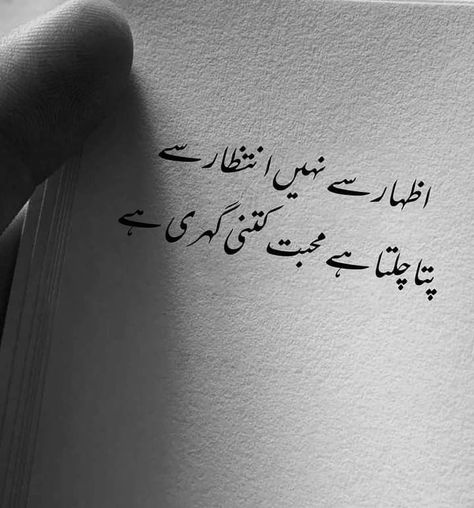 اظہار سے نہیں انتظار سے
پتا چلتا ہے محبت کتنی گہری ہے